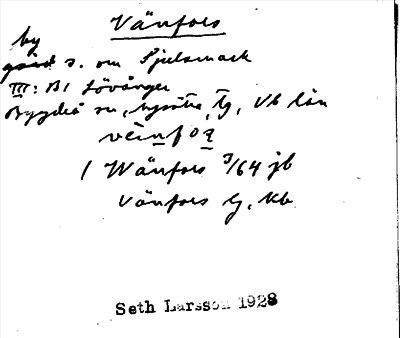 Vänfors
by
gård s. om Sjulsmark
III: B1 Lövånger
Bygdeå sn, Nysätra tg, Vb län
1 Wänfors 3/64 jb
Vänfors G. Kb
Seth Larsson 1928